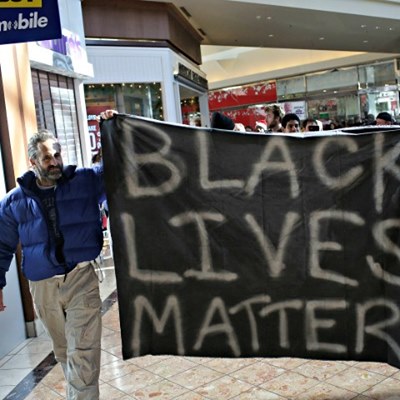 mobile
BLACK
LIVES
MATTER